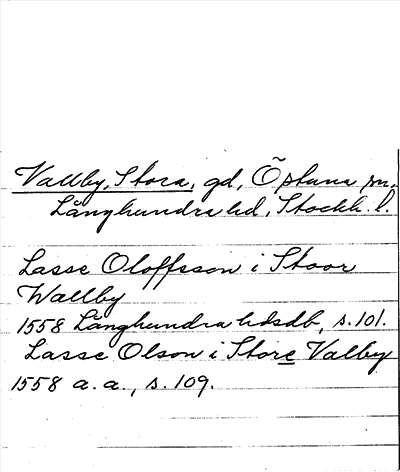 Vallby, Stora, gd, Östuna sn,
Långhundra hd, Stockh. l.
Lasse Oloffsson i Stoor
Wallby
1558 Långhundra hdsdb, s. 101.
Lasse Olson i Store Valby
1558 a. a., s. 109.